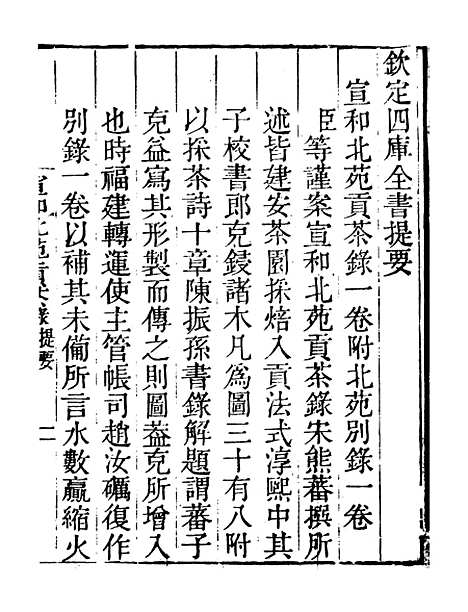 欽定四庫全書提要
宣和北苑貢茶錄一卷附北苑別錄一卷
臣等謹案宣和北苑貢茶錄宋熊蕃撰所
述皆建安茶園採焙入貢法式淳熙中其
子校書郎克鋟諸木凡為圖三十有八附
以採茶詩十章陳振孫書錄解題謂蕃子
克益寫其形製而傳之則圖葢克所增入
也時福建轉運使主管帳司趙汝礪復作
別錄一卷以補其未備所言水數贏縮火
宣和北苑貢茶錄提要
二